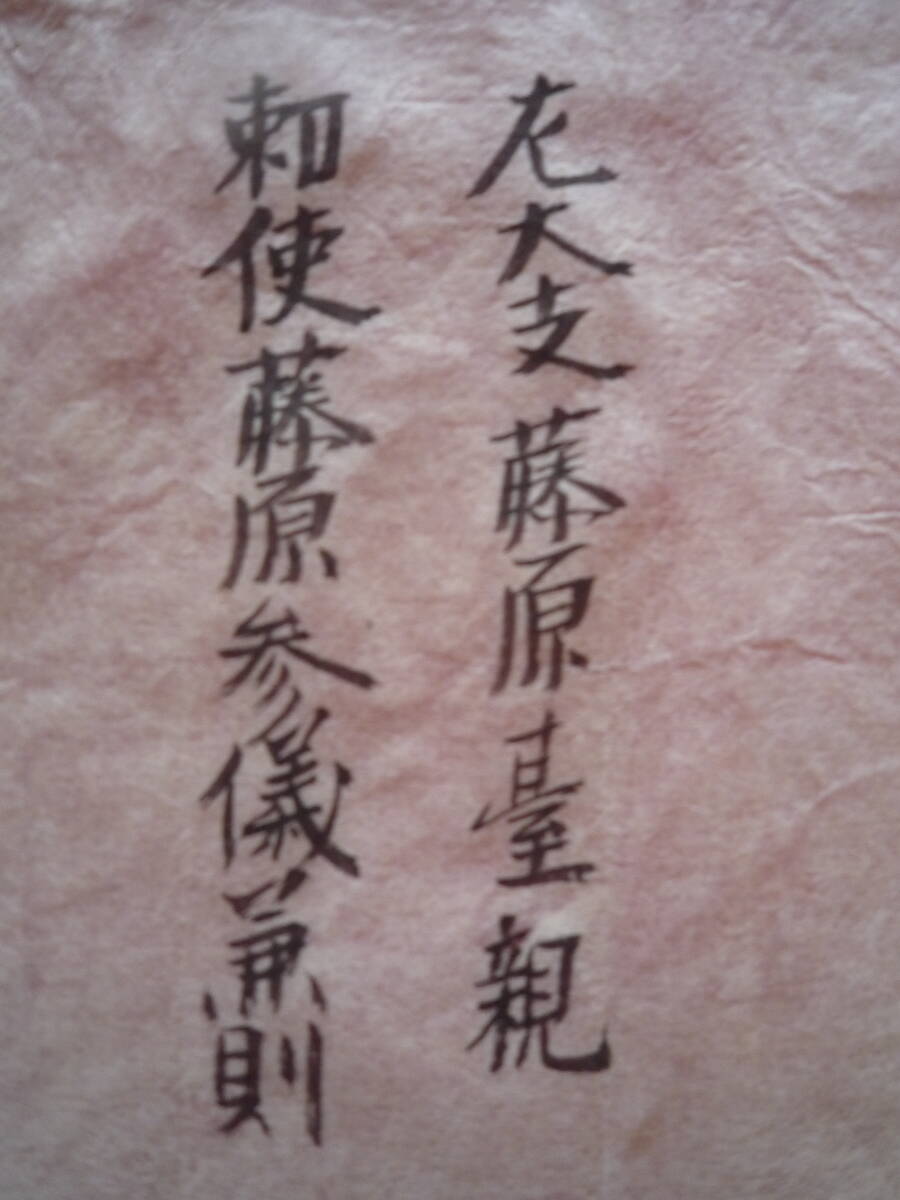 左大支藤原臺親
勅使藤原参儀兼則